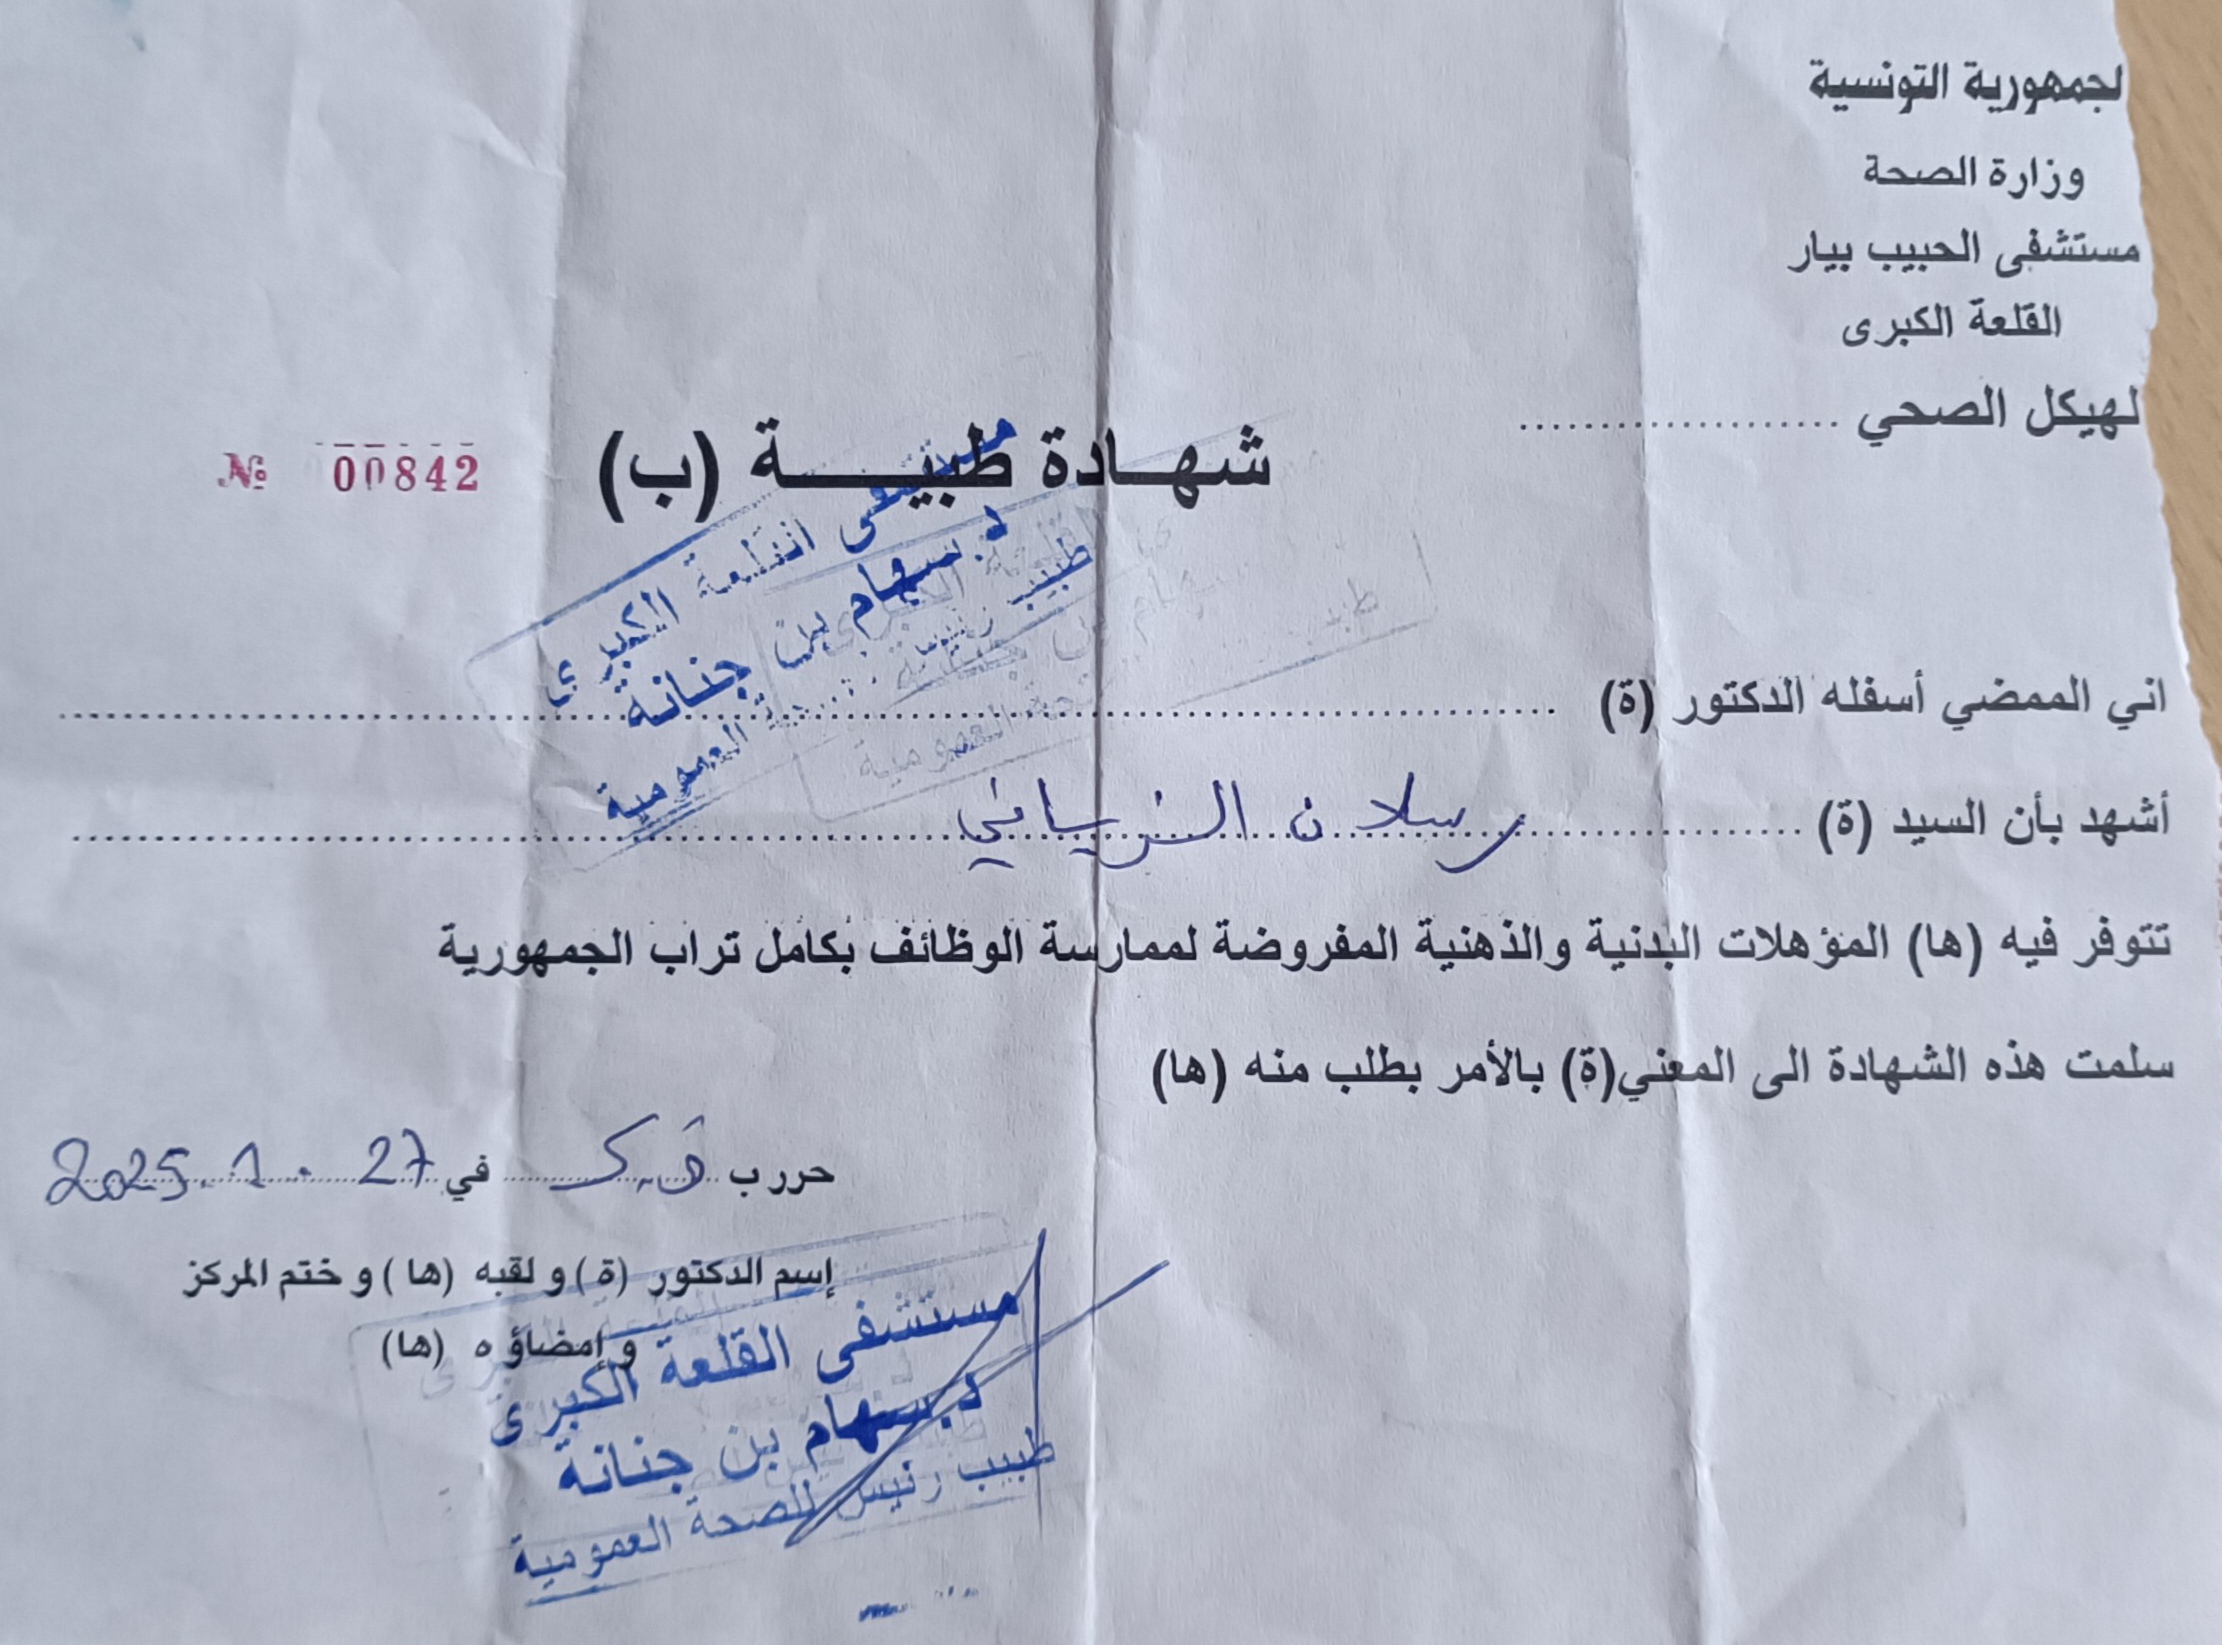 لجمهورية التونسية
وزارة الصحة
مستشفى الحبيب بيار
القلعة الكبرى
لهيكل الصحي ....................
شهادة طبيـــــة (ب)
№ 00842
مستشفى القلعة الكبرى
د. سهام بن جنانة
طبيب رئيس للصحة العمومية
اني الممضي أسفله الدكتور (ة) ....................
أشهد بأن السيد (ة) رسلان الزياني
تتوفر فيه (ها) المؤهلات البدنية والذهنية المفروضة لممارسة الوظائف بكامل تراب الجمهورية
سلمت هذه الشهادة الى المعني(ة) بالأمر بطلب منه (ها)
حرر ب ق.ك في 27 . 1 . 2025
إسم الدكتور (ة) و لقبه (ها) و ختم المركز
و إمضاؤ ه (ها)
مستشفى القلعة الكبرى
د. سهام بن جنانة
طبيب رئيس للصحة العمومية